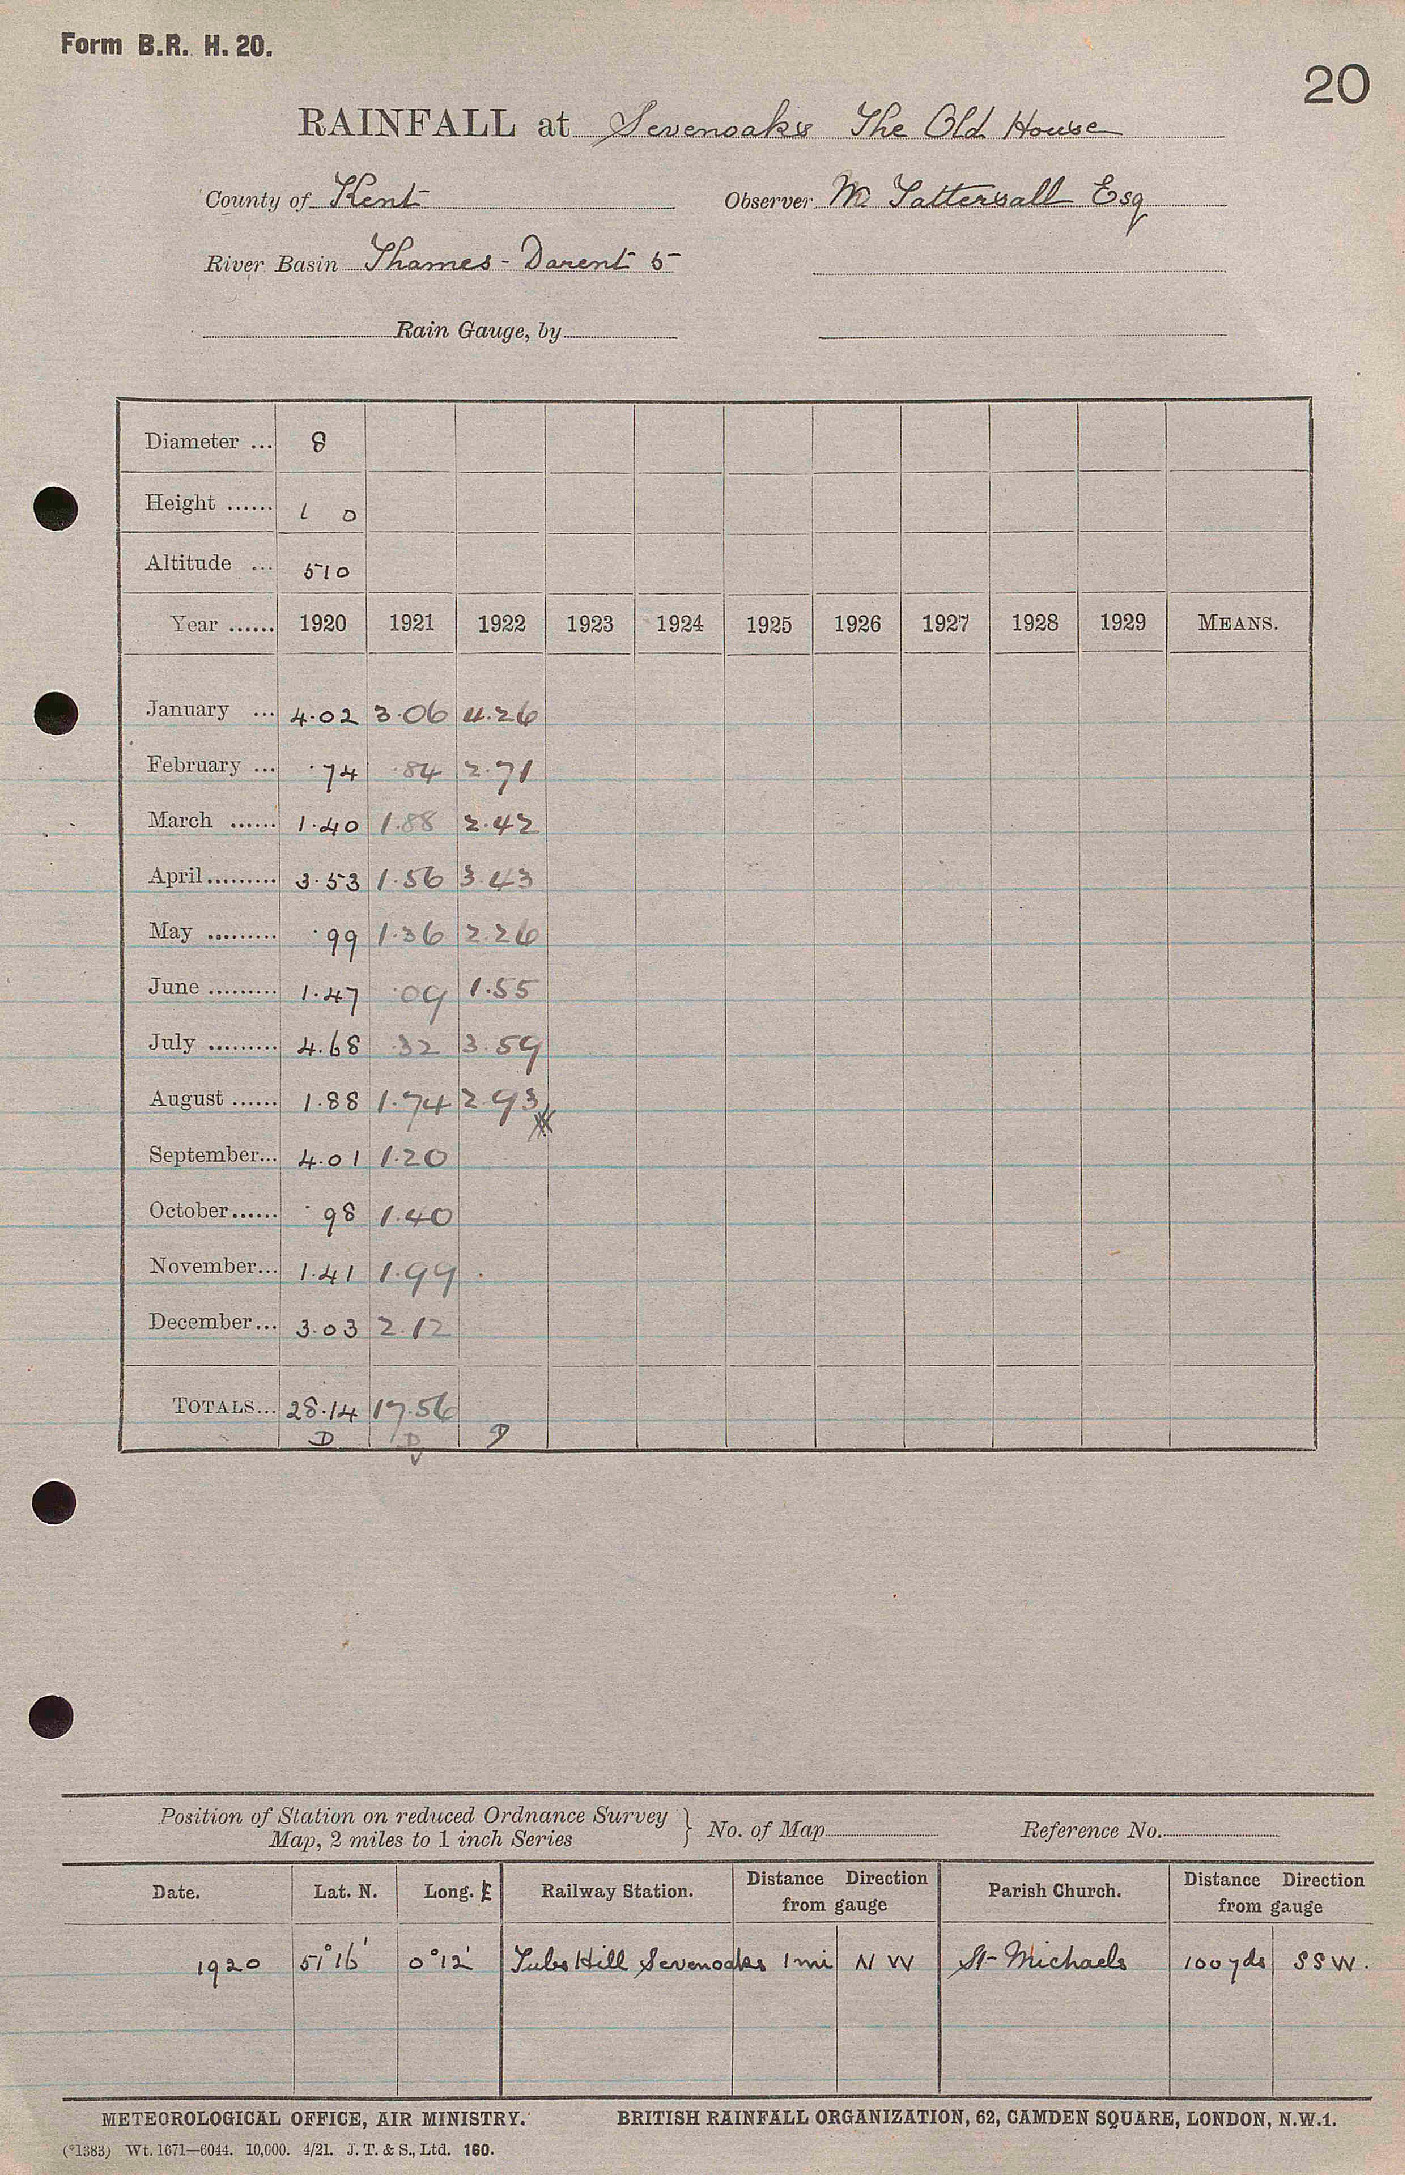 Form B.R. H. 20.
20
RAINFALL at Sevenoaks The Old House
County of Kent Observer W Tattersall Esq
River Basin Thames - Darent 5
Rain Gauge, by
Diameter ... 8
Height ...... 1 0
Altitude ... 510
Year ...... 1920 1921 1922 1923 1924 1925 1926 1927 1928 1929 MEANS.
January ... 4.02 3.06 4.26
February ... .74 .84 2.71
March ...... 1.40 1.88 2.42
April......... 3.53 1.56 3.43
May ......... .99 1.36 2.26
June ......... 1.47 .09 1.55
July ......... 4.68 .32 3.59
August ...... 1.88 1.74 2.93
September... 4.01 1.20
October...... .98 1.40
November... 1.41 1.99 .
December... 3.03 2.12
TOTALS... 28.14 17.56
D D D
Position of Station on reduced Ordnance Survey
Map, 2 miles to 1 inch Series } No. of Map Reference No.
Date. Lat. N. Long. E Railway Station. Distance Direction from gauge Parish Church. Distance Direction from gauge
1920 51°16' 0°12' Tubs Hill Sevenoaks 1 mi N W St Michaels 100 yds S S W.
METEOROLOGICAL OFFICE, AIR MINISTRY. BRITISH RAINFALL ORGANIZATION, 62, CAMDEN SQUARE, LONDON, N.W.1.
(*1383) Wt. 1671—6044. 10,000. 4/21. J. T. & S., Ltd. 160.